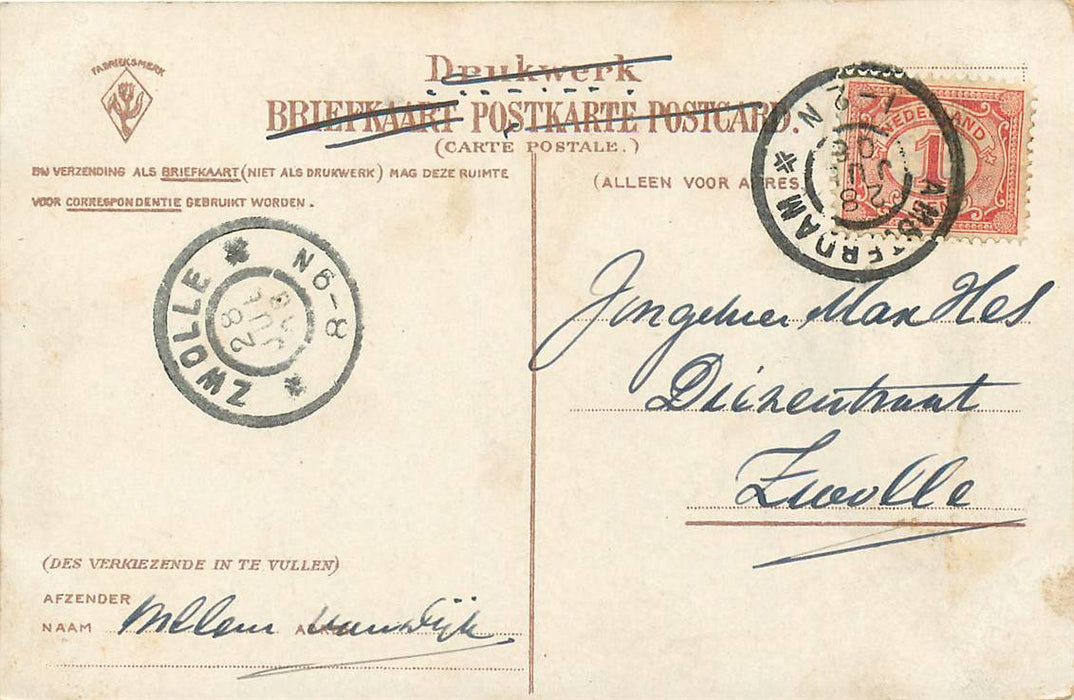 FABRIEKSMERK
Drukwerk
BRIEFKAART POSTKARTE POSTCARD.
(CARTE POSTALE.)
BIJ VERZENDING ALS BRIEFKAART (NIET ALS DRUKWERK) MAG DEZE RUIMTE
VOOR CORRESPONDENTIE GEBRUIKT WORDEN.
(ALLEEN VOOR ADRES
NEDERLAND
1
AMSTERDAM * 1-2 N
ZWOLLE * N 6-8 *
Jongeheer Max Hes
Diezerstraat
Zwolle
(DES VERKIEZENDE IN TE VULLEN)
AFZENDER
NAAM Willem van Dijk